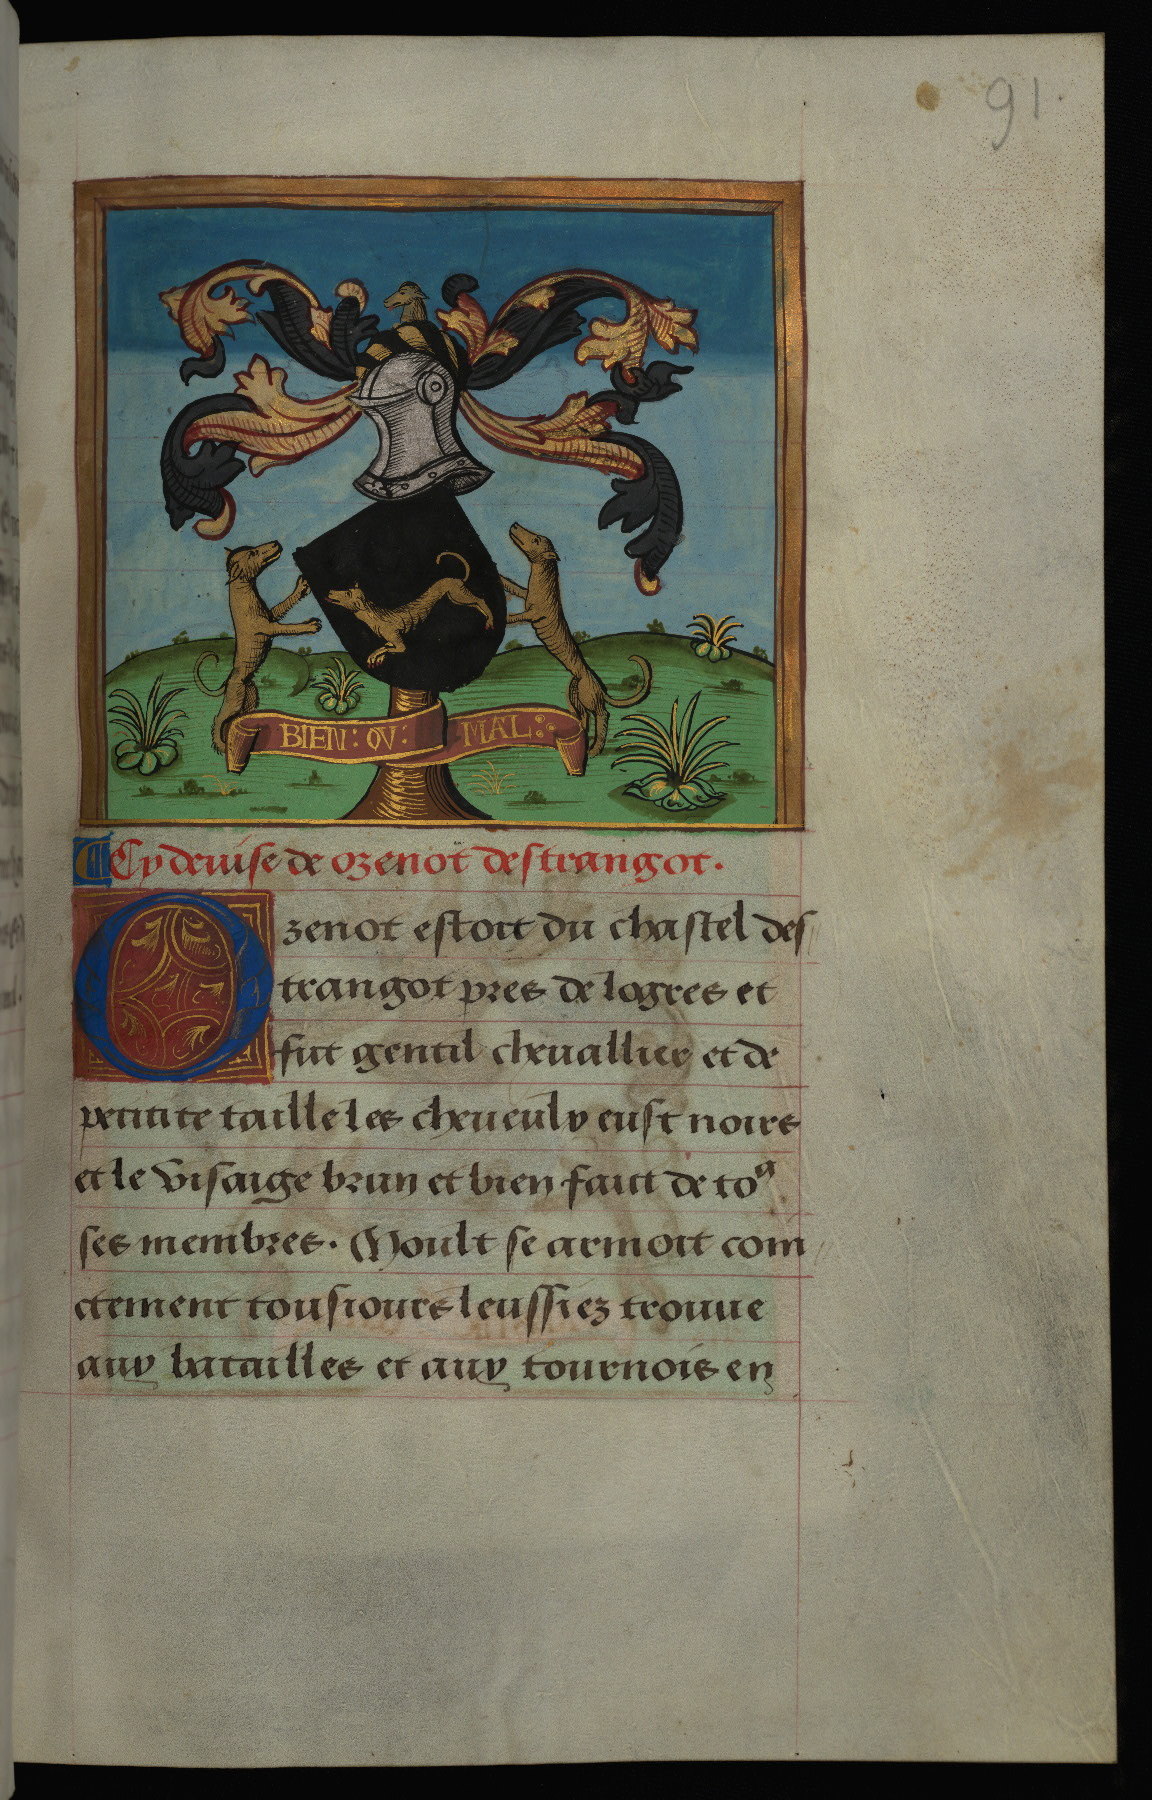 91.
BIEN: OV: MAL:
Cy deuise de ozenot destrangot.
Ozenot estoit du chastel des
trangot pres de logres et
fut gentil cheuallier et de
petitite taille les cheueulx eust noirs
et le visaige brun et bien faict de to⁹
ses membres. Moult se armoit coin
ctement tousiours leussiez trouue
aux batailles et aux tournois en